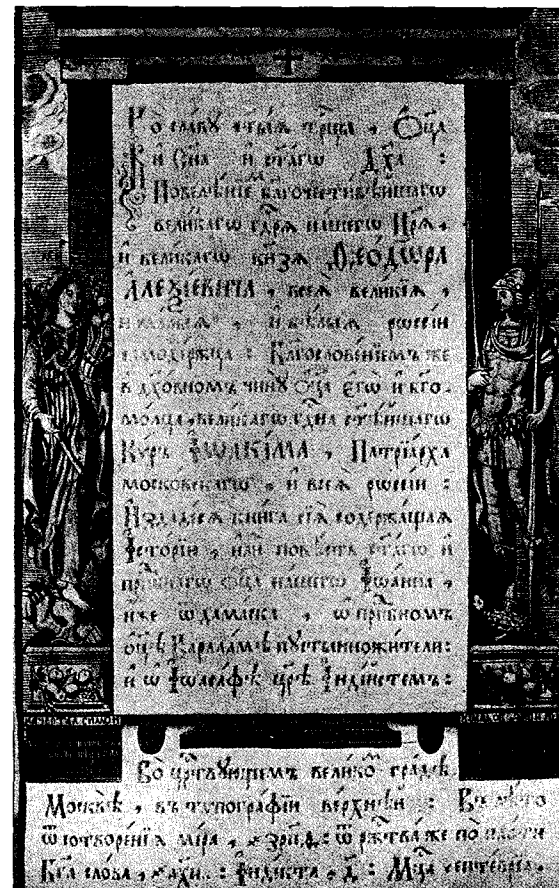 Во сла́вꙋ ст҃ы́ѧ трⷪ҇цы , Ѻ҆ц҃а
И҆ Сн҃а и҆ ст҃а́гѡ Дх҃а :
Повелѣ́нїемъ бл҃гочести́вѣйшагѡ
вели́кагѡ гдⷭ҇рѧ на́шегѡ Цр҃ѧ̀ ,
и҆ вели́кагѡ кнз҃ѧ Ѳео́дѡра
А҆леѯі́евича , всеѧ̀ вели́кїѧ ,
и҆ ма́лыѧ , и҆ бѣ́лыѧ рѡссі́и
самоде́ржца : Благослове́нїемъ же
в дх҃о́вномъ чи́нꙋ ѻ҆ц҃а є҆гѡ̀ и҆ бг҃о-
мо́лца , вели́кагѡ гдⷭ҇на ст҃ѣ́йшагѡ
Кѵ́ръ І҆ѡакі́ма , Патрїа́рха
моско́вскагѡ , и҆ всеѧ̀ рѡссі́и :
И҆здаде́сѧ кни́га сїѧ̀ содержа́щаѧ
І҆сторі́ю , и҆лѝ по́вѣсть ст҃а́гѡ и҆
прпⷣбнагѡ ѻ҆ц҃а на́шегѡ І҆ѡа́нна ,
и҆́же ѿ дама́ска , ѡ҆ прпⷣбномъ
ѻ҆ц҃ѣ̀ Варлаа́мѣ пꙋстынножи́тели :
и҆ ѡ҆ І҆ѡаса́фѣ цр҃ѣ̀ І҆нді́йстемъ :
Во црⷭ҇твꙋющемъ вели́комъ гра́дѣ
Москвѣ̀ , въ тѵпогра́фїи ве́рхнѣй : Въ лѣ́то
ѿ сотворе́нїѧ мі́ра , ҂зрп҃ѳ : ѿ ржⷭ҇тва́ же по пло́ти
Бг҃а сло́ва , ҂ах҃п : І҆ндїкта , д҃ : Мцⷭ҇а септе́врїа .